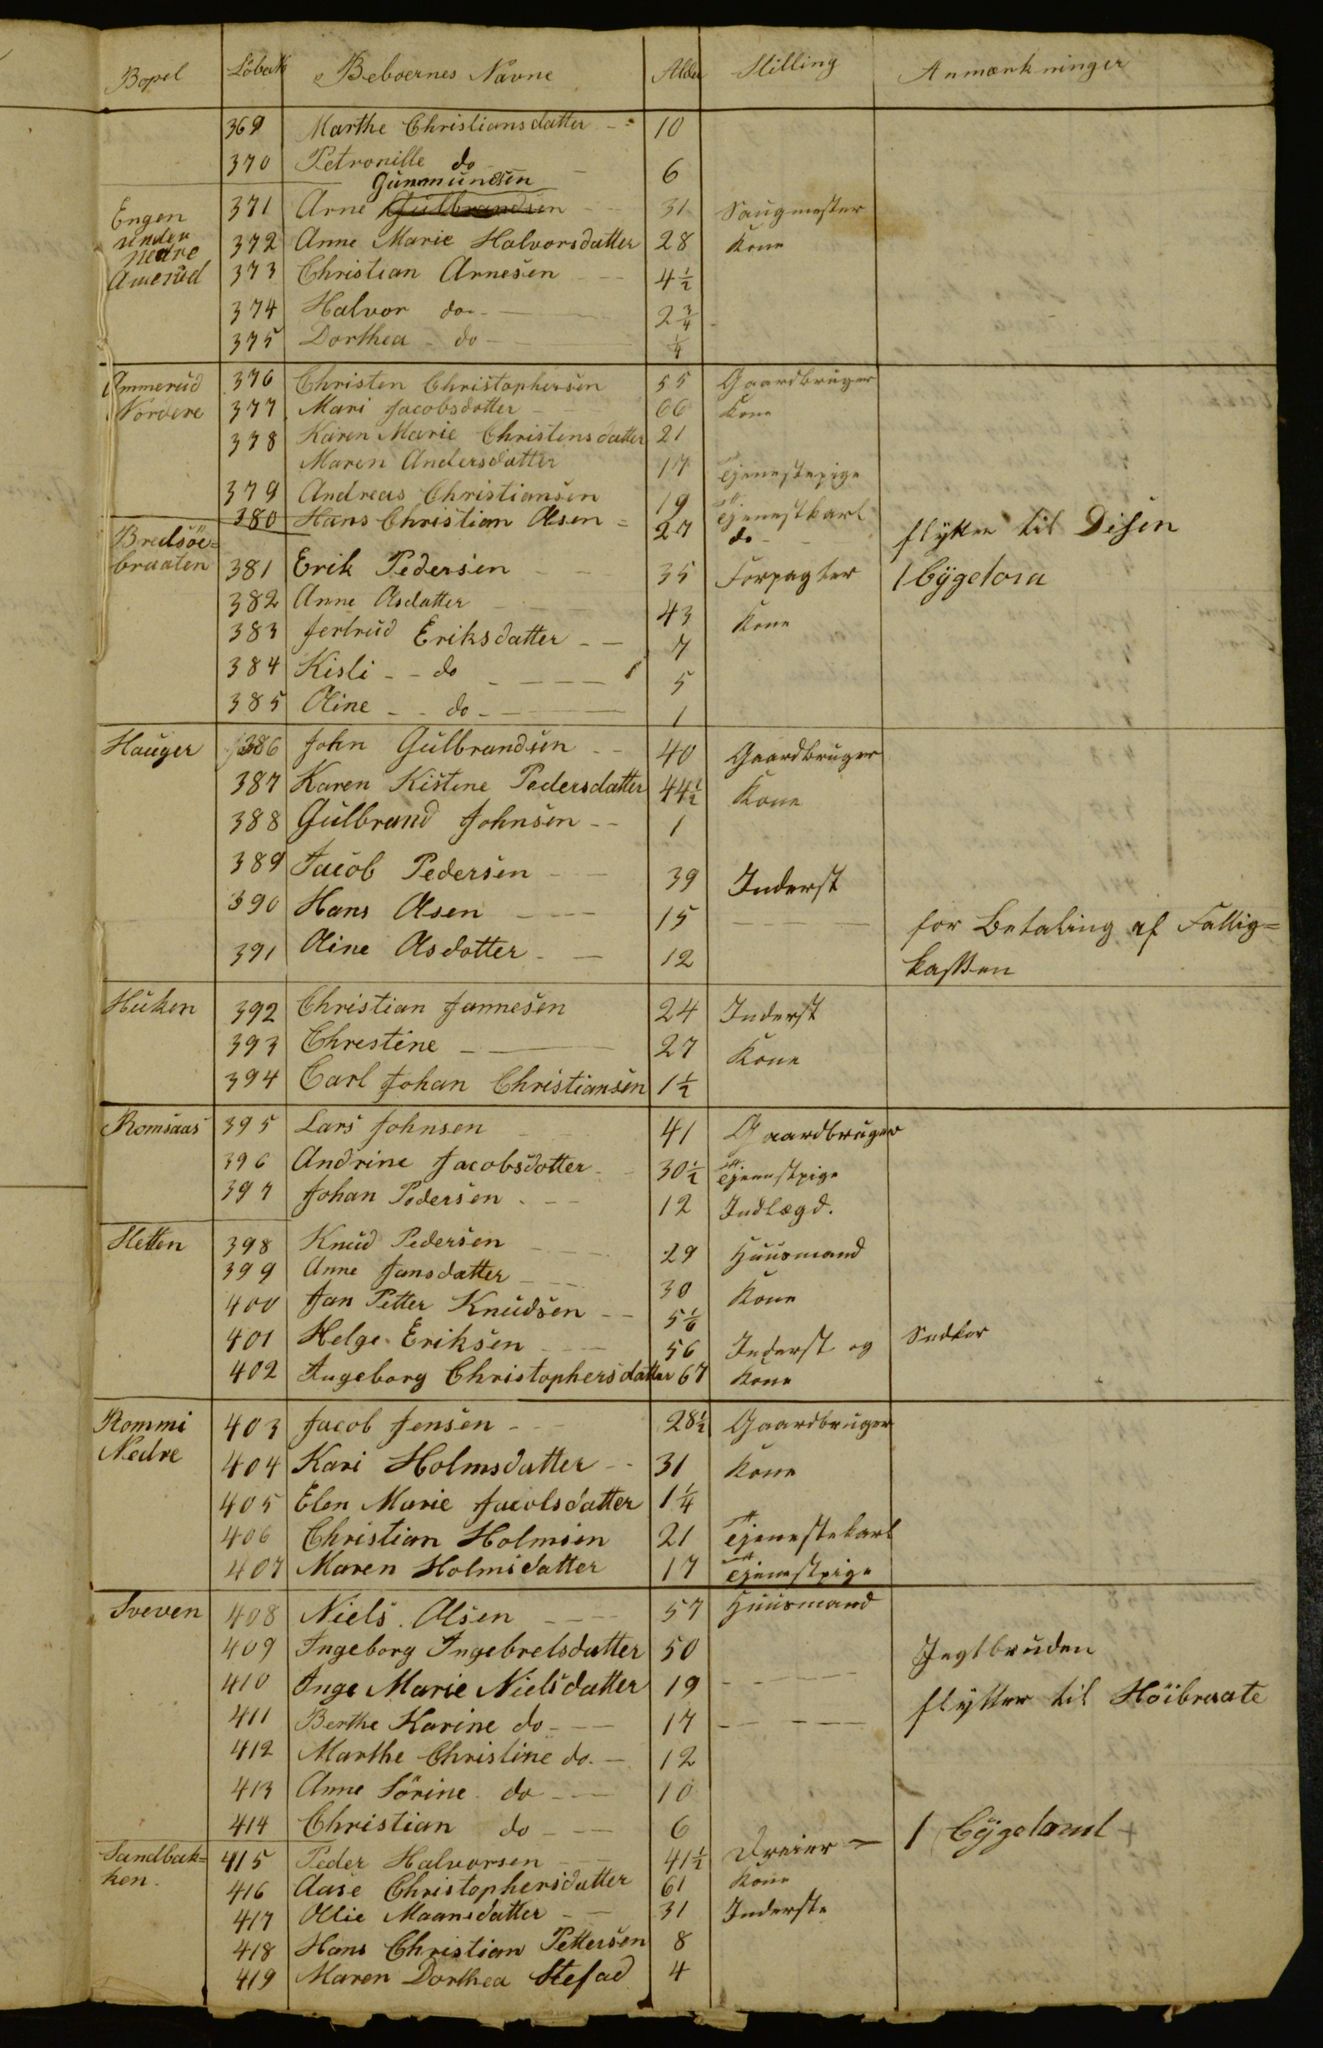 Bopel Löbe No Beboernes Navne Alder Stilling Anmærkninger
369 Marthe Christiansdatter 10
370 Petronille do 6
Gunmundsen
Engen 371 Arne Gulbrandsen 31 Saugmester
under 372 Anne Marie Halvorsdatter 28 Kone
nedre
Amerud 373 Christian Arnesen 4 1/2
374 Halvor do 2 3/4
375 Dorthea do 1/4
Ammerud 376 Christen Christophersen 55 Gaardbruger
Nordere 377 Mari Jacobsdatter 66 Kone
378 Karen Marie Christensdatter 21
Maren Andersdatter 17 Tjenestepige
379 Andreas Christiansen 19 Tjenestkarl
380 Hans Christian Olsen 27 do flytter til Disen
Bredsöe=
braaten 381 Erik Pedersen 35 Forpagter
382 Anne Olsdatter 43 Kone
383 Jertrud Eriksdatter 7
384 Kisti do 5
385 Oline do 1
Hauger 386 John Gulbrandsen 40 Gaardbruger
387 Karen Kistine Pedersdatter 44 1/2 Kone
388 Gulbrand Johnsen 1
389 Jacob Pedersen 39 Inderst
390 Hans Olsen 15 for Betaling af Fattig=
391 Oline Olsdatter 12 kassen
Huken 392 Christian Jannesen 24 Inderst
393 Chrestine 27 Kone
394 Carl Johan Christiansen 1 1/2
Romsaas 395 Lars Johnsen 41 Gaardbruger
396 Andrine Jacobsdatter 30 1/2 Tjenestpige
397 Johan Pedersen 12 Indlægd.
Stetten 398 Knud Pedersen 29 Huusmand
399 Anne Jansdatter 30 Kone
400 Jan Petter Knudsen 5 1/6
401 Helge Eriksen 56 Inderst og
402 Ingeborg Christophersdatter 67 Kone
Rommi 403 Jacob Jensen 28 1/2 Gaardbruger
Nedre 404 Kari Holmsdatter 31 Kone
405 Elen Marie Jacobsdatter 1 1/4
406 Christian Holmsen 21 Tjenestekarl
407 Maren Holmsdatter 17 Tjenestpige
Sveven 408 Niels Olsen 57 Huusmand
409 Ingeborg Ingebretsdatter 50
410 Inge Marie Nielsdatter 19 flytter til Höibraate
411 Berthe Karine do 17
412 Marthe Christine do 12
413 Anne Sörine do 10
414 Christian do 6
Sandbak= 415 Peder Halvorsen 41 1/2 Dreier 1 Bÿgeland
ken. 416 Aase Christophersdatter 61 Kone
417 Ollie Maansdatter 31 Inderste
418 Hans Christian Pettersen 8
419 Maren Dorthea 4